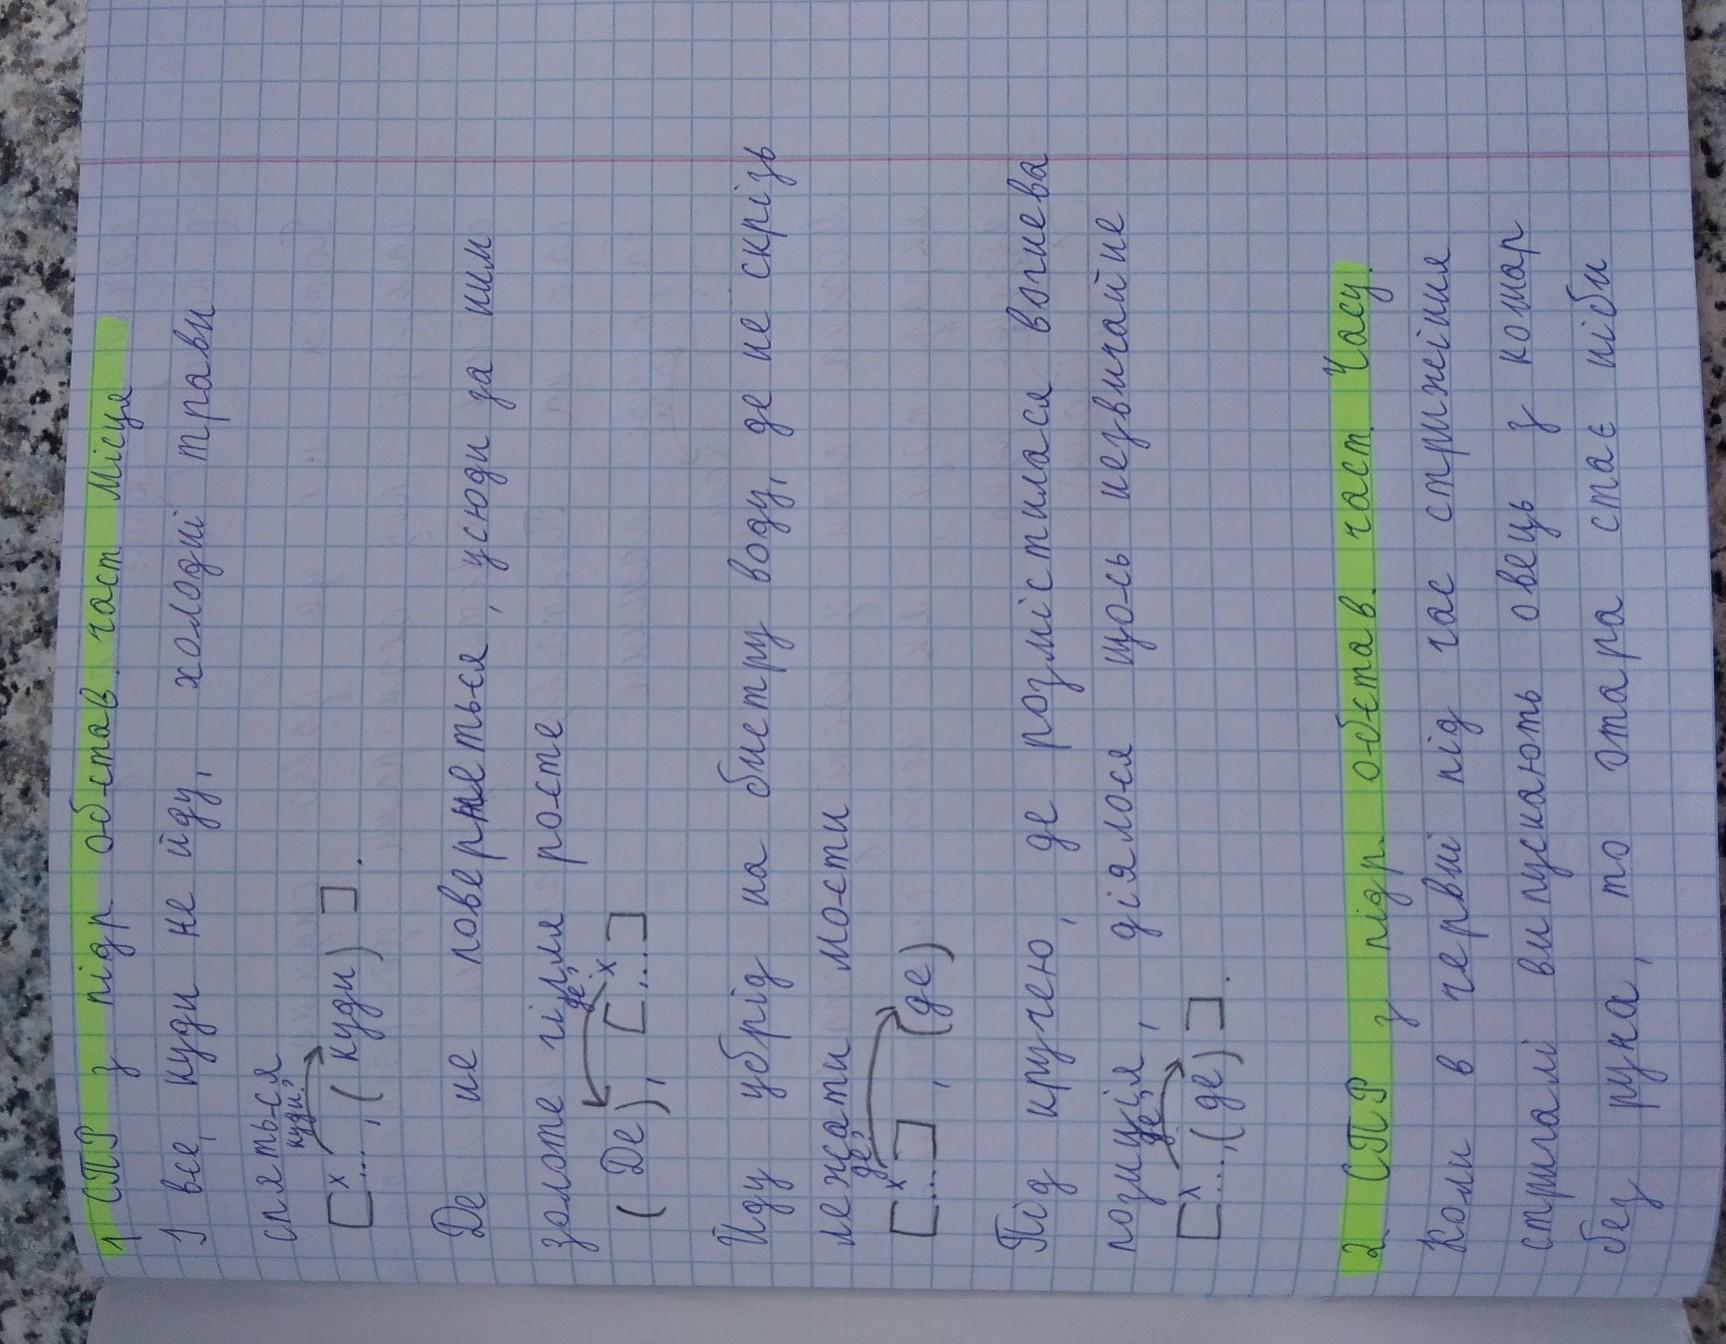 1 СПР з підр обстав. част Місця
І все, куди не йду, холодні трави
сняться
куди?
[x...,(куди)].
Де не повернеться, усюди за ним
золоте гілля росте
де?
(Де), [x...]
Йду убрід на бистру воду, де не скрізь
лежати мости
де?
[x...], (де)
Під кручею, де розмістилася вогнева
позиція, діялося щось незвичайне
де?
[x...,(де)].
2 СПР з підр. обстав. част. Часу.
Коли в червні під час стриження
стригалі випускають овець з кошар
без руна, то отара стає ніби